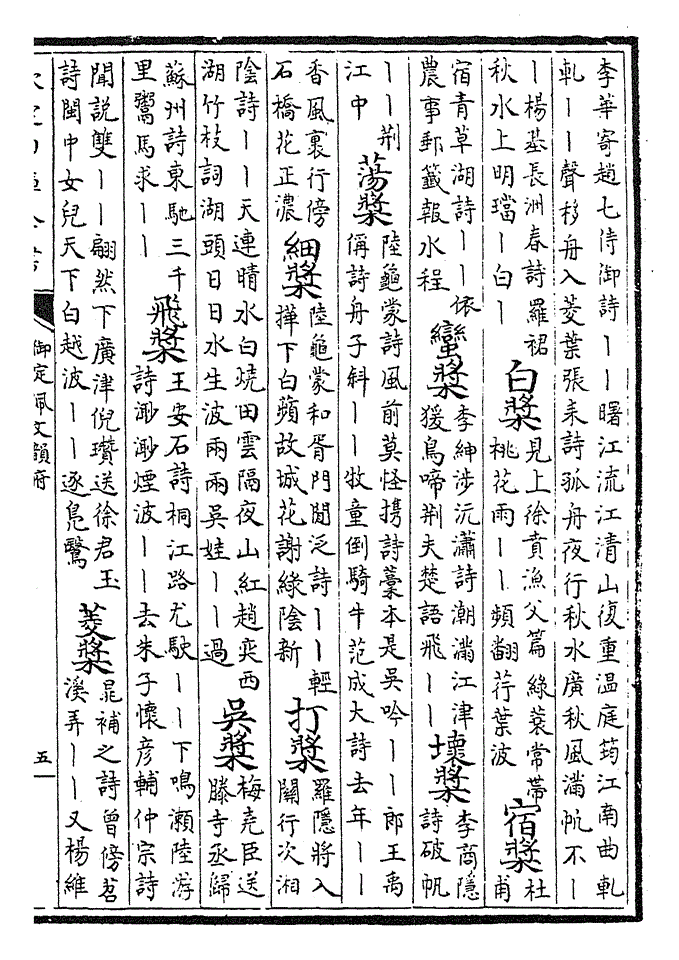 李華寄趙七侍御詩——曙江流江清山復重温庭筠江南曲軋
軋——聲移舟入菱葉張耒詩孤舟夜行秋水廣秋風滿帆不—
—楊基長洲春詩羅裙
秋水上明璫—白—
白槳
見上徐賁漁父篇綠蓑常帶
桃花雨——頻翻荇葉波
宿槳
杜
甫
宿青草湖詩——依
農事郵籤報水程
蠻槳
李紳涉沅瀟詩潮滿江津
猨鳥啼荆夫楚語飛——
壞槳
李商隱
詩破帆
——荆
江中
蕩槳
陸龜蒙詩風前莫怪攜詩藁本是吳吟——郎王禹
偁詩舟子斜——牧童倒騎牛范成大詩去年——
香風裏行傍
石橋花正濃
細槳
陸龜蒙和胥門閒泛詩——輕
撶下白蘋故城花謝綠陰新
打槳
羅隱將入
關行次湘
陰詩——天連晴水白燒田雲隔夜山紅趙奕西
湖竹枝詞湖頭日日水生波兩兩吳娃——過
吳槳
梅堯臣送
滕寺丞歸
蘇州詩東馳三千
里鬻馬求——
飛槳
王安石詩桐江路尤駛——下鳴瀬陸游
詩渺渺煙波——去朱子懷彦輔仲宗詩
聞說雙——翩然下廣津倪瓚送徐君玉
詩閩中女兒天下白越波——逐鳧鷖
菱槳
晁補之詩曾傍苕
溪弄——又楊維
御定佩文韻府
五